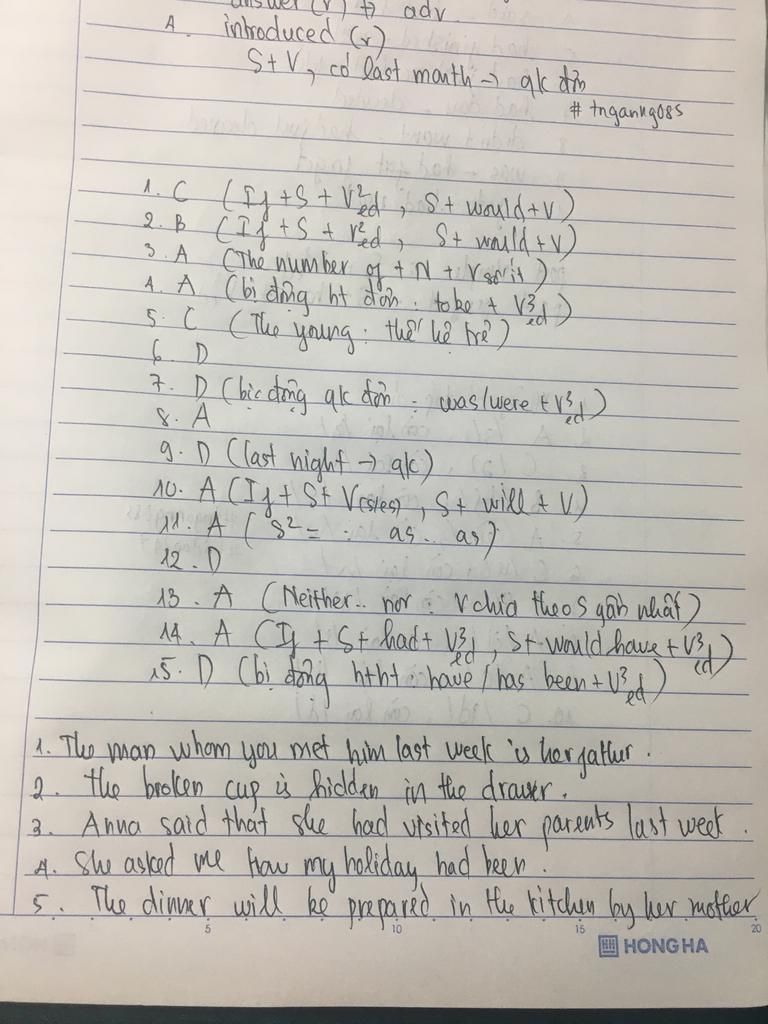 answer (v) + adv
A. introduced (v)
S + V, có last month → qk đơn
# tnganng085
1. C (If + S + V2ed, S + would + V)
2. B (If + S + V2ed, S + would + V)
3. A (The number of + N + Vsố ít)
4. A (bị động ht đơn: tobe + V3ed)
5. C (The young: thế hệ trẻ)
6. D
7. D (bị động qk đơn: was/were + V3ed)
8. A
9. D (last night → qk)
10. A (If + S + V(s/es), S + will + V)
11. A (s2 = : as.. as)
12. D
13. A (Neither.. nor: V chia theo S gần nhất)
14. A (If + S + had + V3ed, S + would have + V3ed)
15. D (bị động htht: have/has been + V3ed)
1. The man whom you met him last week is her father.
2. The broken cup is hidden in the drawer.
3. Anna said that she had visited her parents last week.
4. She asked me how my holiday had been.
5. The dinner will be prepared in the kitchen by her mother
5 10 15 20
HH HONG HA